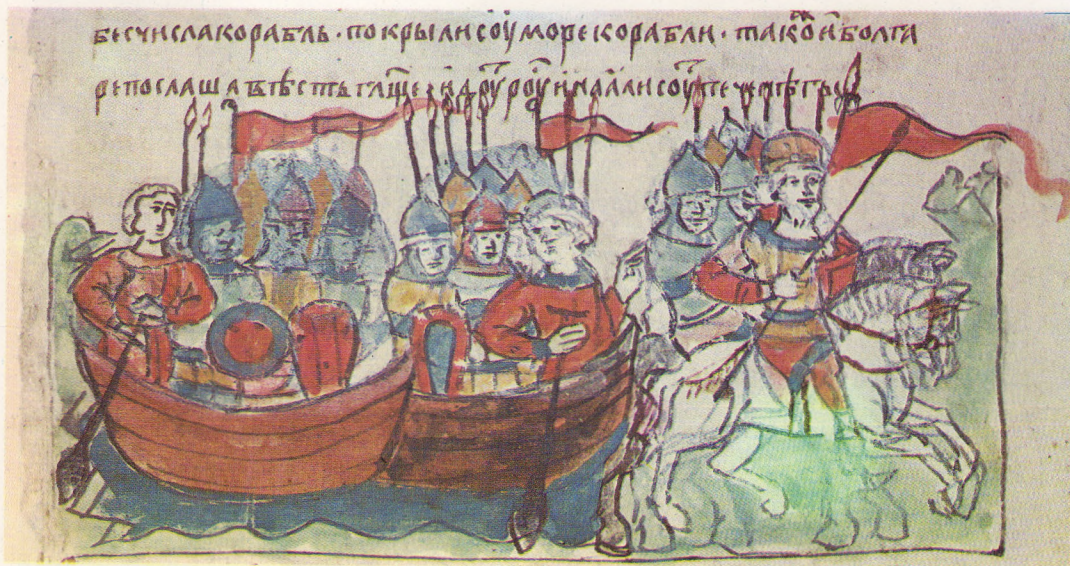 бес числа корабль · покрыли соуⷮ море корабли · такоⷤ и болга
ре послаша вѣсть гл҃ще · идоуⷮ роуⷭ и наꙗли соуⷮ печенѣгы